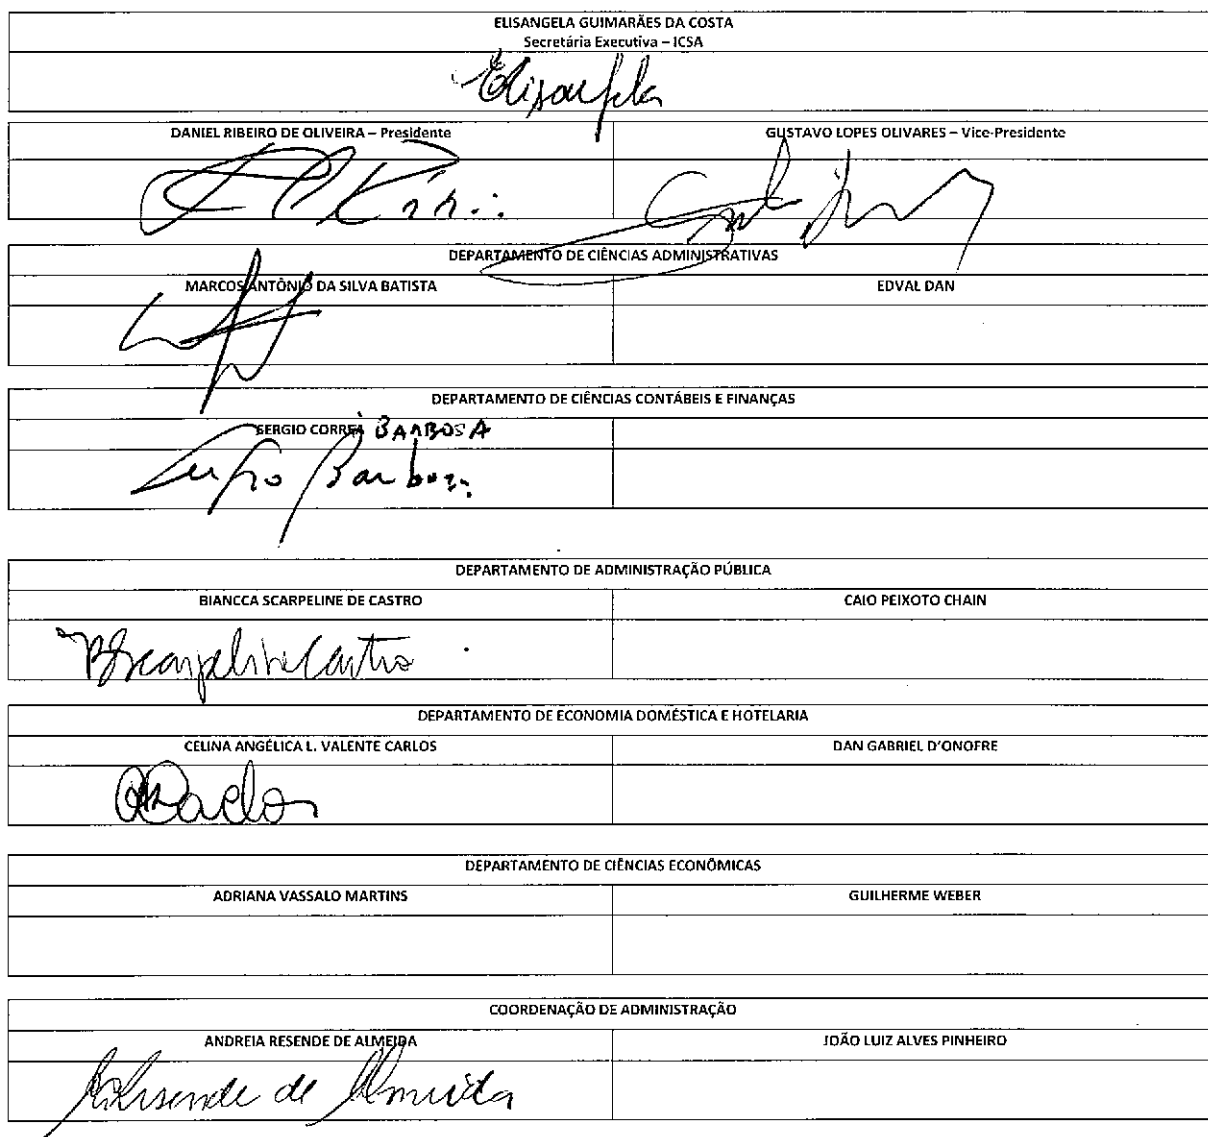 ELISANGELA GUIMARÃES DA COSTA
Secretária Executiva – ICSA
Elisangela
DANIEL RIBEIRO DE OLIVEIRA – Presidente
GUSTAVO LOPES OLIVARES – Vice-Presidente
DEPARTAMENTO DE CIÊNCIAS ADMINISTRATIVAS
MARCOS ANTÔNIO DA SILVA BATISTA
EDVAL DAN
DEPARTAMENTO DE CIÊNCIAS CONTÁBEIS E FINANÇAS
SERGIO CORREA BARBOSA
Sergio Barbosa
DEPARTAMENTO DE ADMINISTRAÇÃO PÚBLICA
BIANCCA SCARPELINE DE CASTRO
CAIO PEIXOTO CHAIN
BScarpelineCastro
DEPARTAMENTO DE ECONOMIA DOMÉSTICA E HOTELARIA
CELINA ANGÉLICA L. VALENTE CARLOS
DAN GABRIEL D'ONOFRE
DEPARTAMENTO DE CIÊNCIAS ECONÔMICAS
ADRIANA VASSALO MARTINS
GUILHERME WEBER
COORDENAÇÃO DE ADMINISTRAÇÃO
ANDREIA RESENDE DE ALMEIDA
JOÃO LUIZ ALVES PINHEIRO
Resende de Almeida